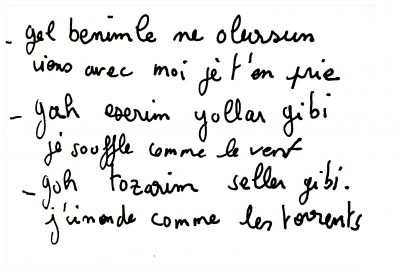 - gel benimle ne olursun
viens avec moi je t'en prie
- gah eserim yollar gibi
je souffle comme le vent
- gah tozarim seller gibi.
j'innonde comme les torrents